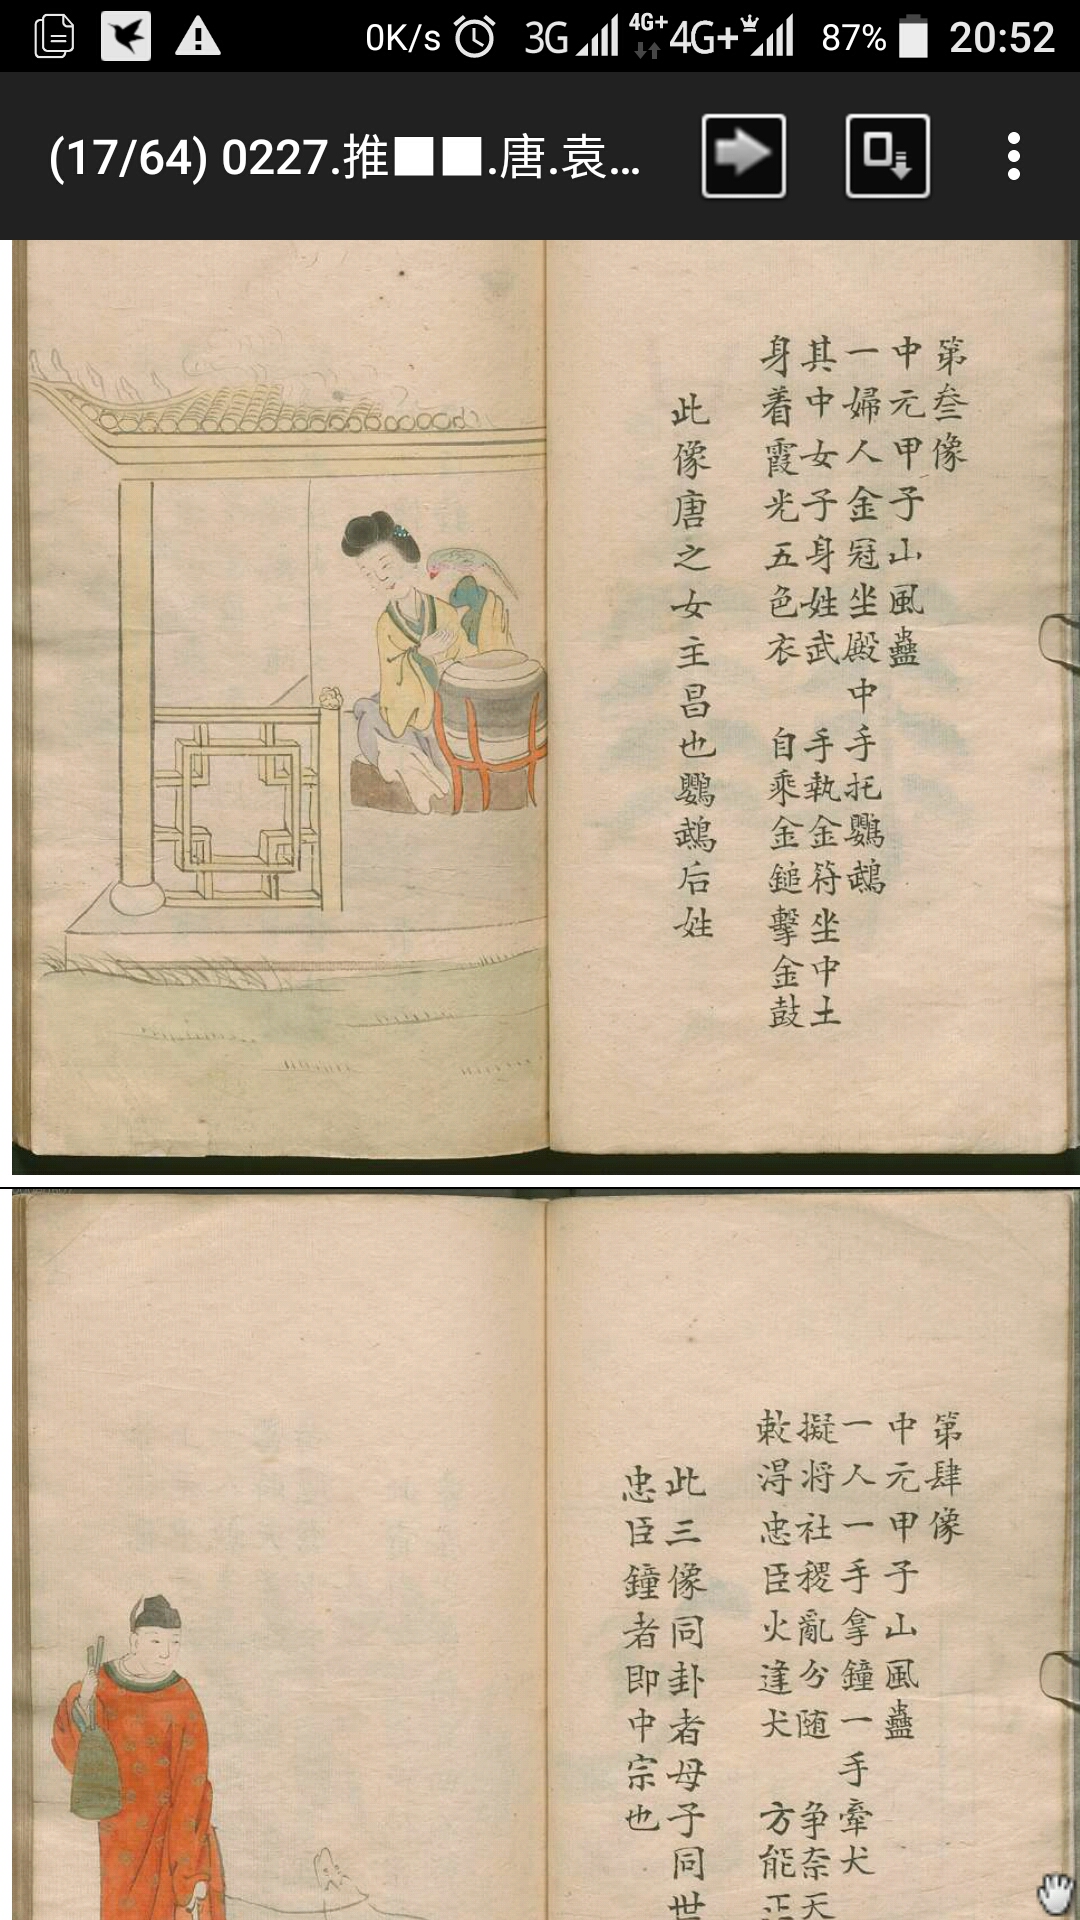 0K/s 3G 4G+ 4G+ 87% 20:52
(17/64) 0227.推■■.唐.袁...
第叁像
中元甲子山風蠱
一婦人金冠坐殿中手托鸚鵡
其中女子身姓武 手執金符坐中土
身着霞光五色衣 自乘金鎚擊金鼓
此像唐之女主昌也鸚鵡后姓
第肆像
中元甲子山風蠱
一人一手拿鐘一手牽犬
擬将社稷亂分随 争奈天
敕淂忠臣火逢犬 方能正
此三像同卦者母子同世
忠臣鐘者即中宗也